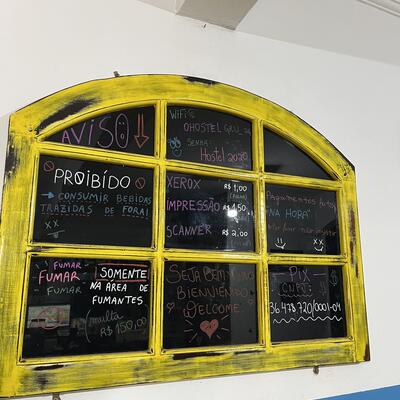 AVISO
WiFi
OHOSTEL GRU
SENHA
Hostel 2020
PROIBÍDO
CONSUMIR BEBIDAS
TRAZIDAS DE FORA!
XX
XEROX R$ 1,00
IMPRESSÃO R$ 1,50
SCANNER R$ 2,00
"NA HORA"
XX
FUMAR
FUMAR
FUMAR
SOMENTE
NA ÁREA DE
FUMANTES
(multa
R$ 150,00
SEJA BEM VINDO
BIENVENIDO
WELCOME
PIX
CNPJ
36.478.720/0001-04